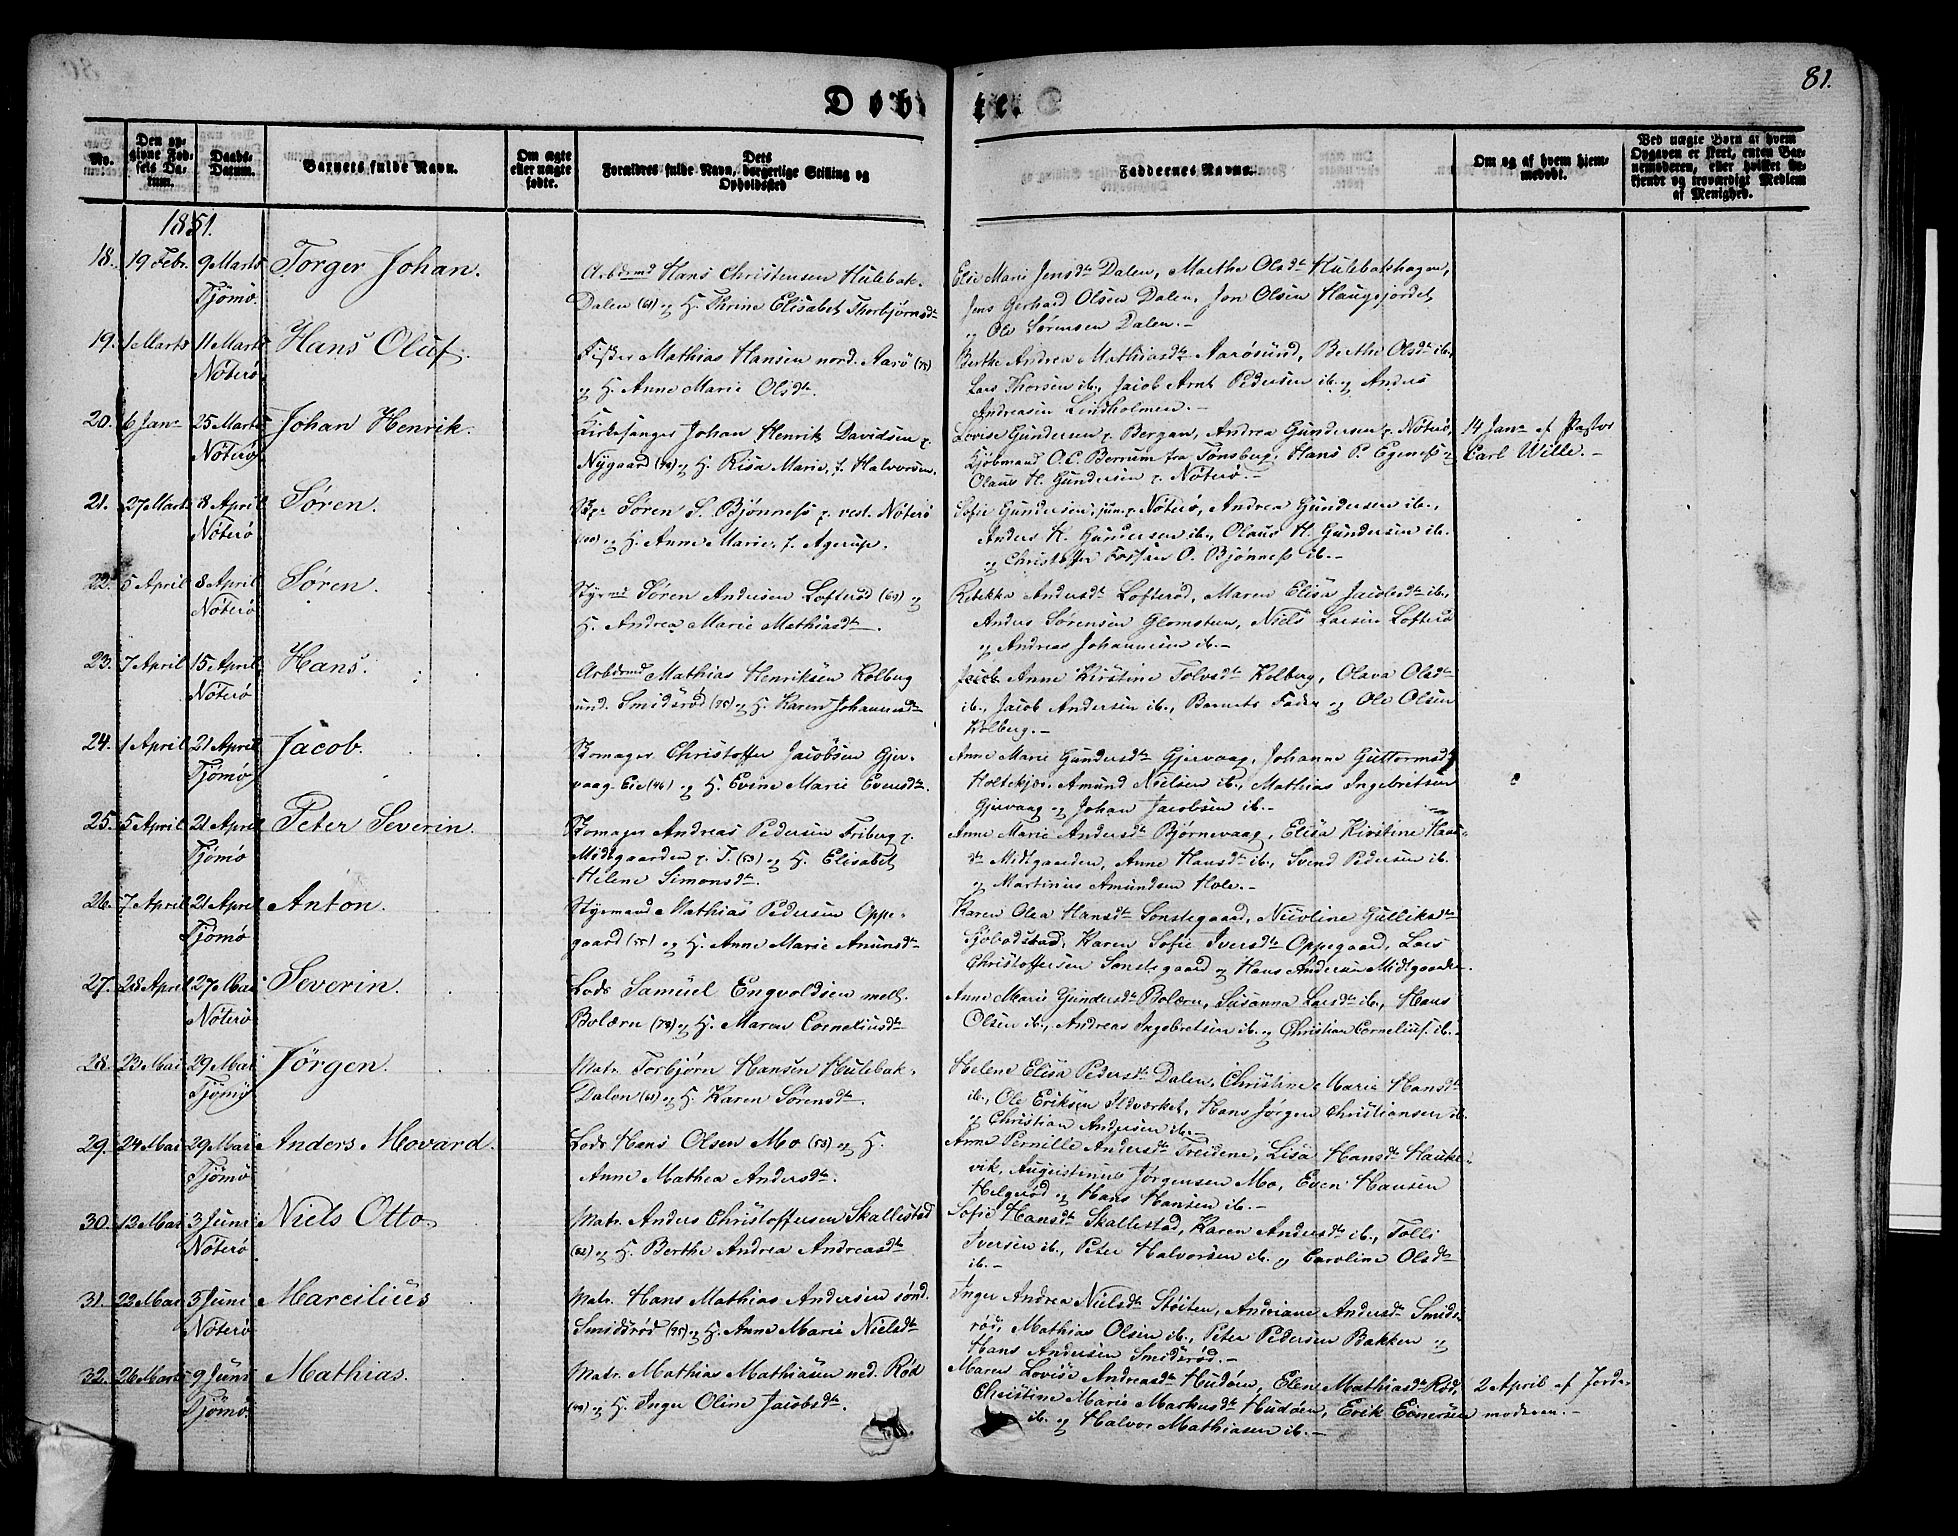 81.
Døbte.
No.
Den opgivne Fødsels Datum.
Daabs-Datum.
Barnets fulde Navn.
Om ægte eller uægte fødte.
Forældres fulde Navn, Dets borgerlige Stilling og Opholdssted
Faddernes Navne.
Om og af hvem hjemmedøbt.
Ved uægte Børn at hvem Opgaven er skeet, enten Barnemoderen, eller hvilket bekjendt og troværdigt Medlem af Menighed.
1851.
18. 19 Febr. 9 Marts Tjömö. Torger Johan.
Arbdsmd Hans Christensen Hulebak-
Dalen (61) og H. Thrine Elisabet Thorbjørnsdtr
Elie Marie Jensdtr Dalen, Marthe Olsdtr Hulebakshagen,
Jens Gerhard Olsen Dalen, Jon Olsen Haugsjordet
og Ole Sørensen Dalen.-
19. 1 Marts 11 Marts Nöterö. Hans Oluf.
Fisker Mathias Hansen nord. Aarø
og H. Anne Marie Olsdtr.
Berthe Andrea Mathiasdtr Aarøsund, Berthe Olsdtr ib.
Lars Thorsen ib., Jacob Arnt Pedersen ib. og Anders
Andreasen Lindholmen.-
20. 6 Janr 25 Marts Nöterö Johan Henrik.
Kirkesanger Johan Henrik Davidsen p.
Nygaard og H. Risa Marie, f. Halvorsen.
Lovise Gundersen p. Bergan, Andrea Gundersen p. Nöterö,
Kjöbmand O. C. Berrum fra Tønsberg, Hans P. Egeness og
Olaus H. Gundersen p. Nöterö.-
14 Janr af Pastor
Carl Wille.-
21. 27 Marts 8 April Nöterö Søren.
Søren S. Bjønness p. vest. Nöterö
og H. Anne Marie, f. Agerup.
Sofie Gundersen, jun. p. Nöterö, Andrea Gundersen ib.
Anders H. Gundersen ib., Olaus H. Gundersen ib.
og Christoffer O. Bjønness ib.-
22. 5 April 8 April Nöterö Søren.
Styrmd Søren Andersen Lofterød (69) og
H. Andrea Marie Mathiasdtr.
Rebekka Andersdtr Lofterød, Maren Elisa Jacobsdtr ib.,
Anders Sørensen Glomsten, Niels Larsen Lofterø
og Andreas Johannesen ib.-
23. 7 April 15 April Nöterö Hans.
Arbdsmd Mathias Henriksen Kolberg
und. Smidsrød og H. Karen Johannesdtr
Jacob Anne Kirstine Tolvsdtr Kolberg, Olava Olsdtr
ib., Jacob Andersen ib., Barnets Fader og Ole Olsen
Kolberg.-
24. 1 April 21 April Tjömö Jacob.
Skomager Christoffer Jacobsen Gjer-
vaag-Eie (46) og H. Evine Marie Evensdtr.
Anne Marie Gundersdtr Gjervaag, Johanne Guttormsdtr
Holtekjær, Amund Nielsen ib., Mathias Ingebretsen
Gjervaag og Johan Jacobsen ib.-
25. 5 April 21 April Tjömö Peter Severin.
Skomager Andreas Pedersen Friberg p.
Midtgaarden p. T. (53) og H. Elisabet
Helene Simonsdtr.
Anne Marie Andersdtr Bjørnevaag, Elisa Kirstine Hans-
dtr Midtgaarden, Anne Hansdtr ib., Svend Pedersen ib.
og Martinius Amundsen Hole.-
26. 7 April 21 April Tjömö Anton.
Styrmand Mathias Pedersen Oppe-
gaard (55) og H. Anne Marie Amunsdtr
Karen Olea Hansdtr Sonstegaard, Nicoline Gulliksdtr
Sjöbodstad, Karen Sofie Iversdtr Oppegaard, Lars
Christoffersen Sonstegaard og Hans Andersen Midtgaarden.
27. 28 April 27 Mai Nöterö Severin.
Lods Samuel Engvoldsen mell.
Bolærn (78) og H. Maren Corneliusdtr
Anne Marie Gundersdtr Bolærn, Susanna Larsdtr ib., Hans
Olsen ib., Andreas Ingebretsen ib. og Christian Cornelius. ib.-
28. 23 Mai 29 Mai Tjömö Jørgen.
Matr. Torbjørn Hansen Hulebak-
Dalen (61) og H. Karen Sørensdtr.
Helene Elisa Pedersdtr Dalen, Christine Marie Hansdtr
ib., Ole Eriksen Stdværket, Hans Jørgen Christiansen ib.
og Christian Andersen ib.-
29. 24 Mai 29 Mai Tjömö Anders Movard.
Lods Hans Olsen Mo (53) og H.
Anne Mathea Andersdtr.
Anne Pernille Andersdtr Treidene, Lisa Hansdtr Hauke-
vik, Augustinus Jørgensen Mo, Even Hansen
Helgerød og Hans Hansen ib.-
30. 12 Mai 3 Juni Nöterö Niels Otto,
Matr. Anders Christoffersen Skallestad
(82) og H. Berthe Andrea Andreasdtr
Sofie Hansdtr Skallestad, Karen Andersdtr ib., Tolli
Iversen ib., Peter Halvorsen ib. og Caroline Olsdtr
ib.-
31. 22 Mai 3 Juni Nöterö Marcilius
Matr. Hans Mathias Andersen sønd.
Smidsrød og H. Anne Marie Nielsdtr
Inger Andrea Nielsdtr Støiten, Andriane Andersdtr Smids-
rød, Mathias Olsen ib., Peter Pedersen Bakken og
Hans Andersen Smidsrød.-
32. 26 Marts 9 Juni Tjömö. Mathias.
Matr. Mathias Mathiasen ned. Rød
og H. Inger Oline Jacobsdtr.
Maren Lovise Andreasdtr Hudøen, Elen Mathiasdtr Rød,
Christine Marie Markusdtr Hudøen, Erik Einersen
ib. og Halvor Mathiasen ib.-
2 April af Jorde-
moderen.-